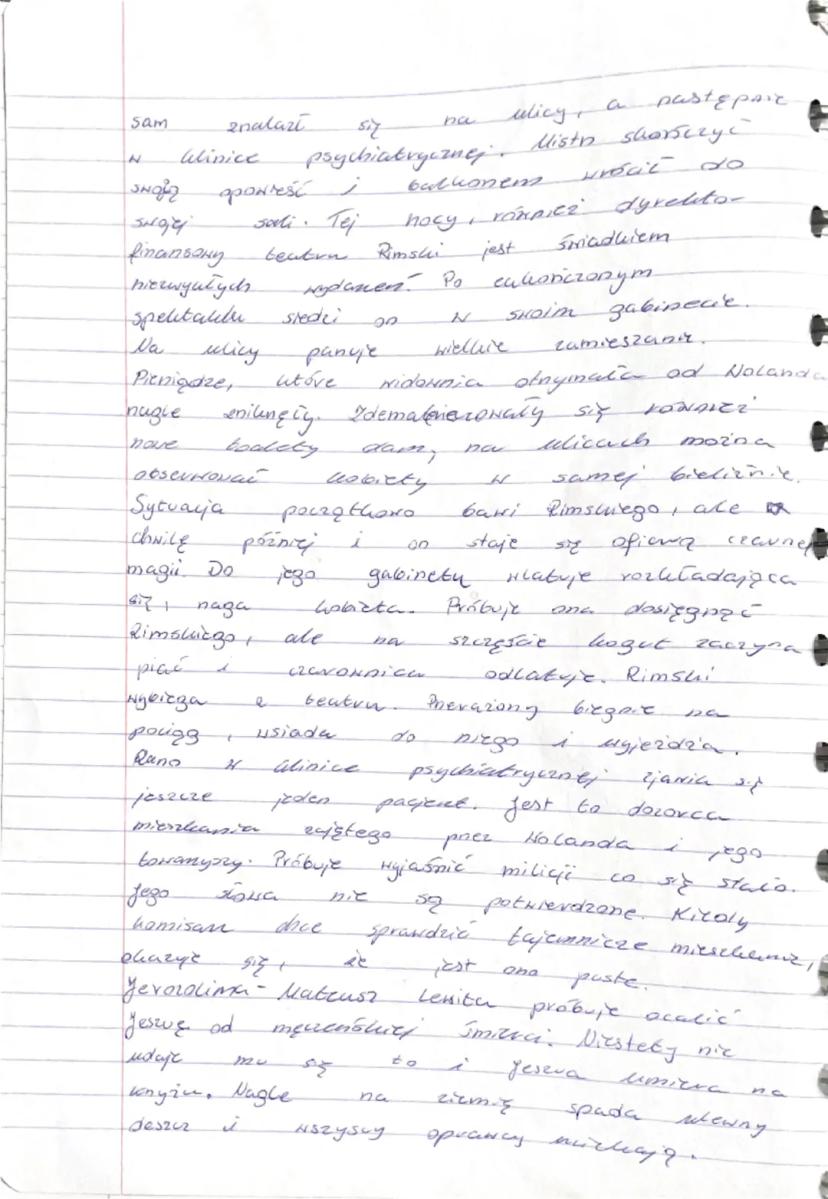 sam znalazł się na ulicy, a następnie
w klinice psychiatrycznej. Mistrz skończyć
swoją opowieść i balkonem wrócić do
swojej sali. Tej nocy, również dyrekto-
finansowy teatru Rimski jest świadkiem
niezwykłych wydarzeń. Po zakończonym
spektaklu siedzi on w swoim gabinecie.
Na ulicy panuje wielkie zamieszanie.
Pieniądze, które widownia otrzymała od Wolanda
nagle zniknęły. Zdematerializowały się również
nowe toalety dam, na ulicach można
obserwować kobiety w samej bieliźnie.
Sytuacja początkowo bawi Rimskiego, ale
chwilę później i on staje się ofiarą czarnej
magii. Do jego gabinetu wlatuje rozkładająca
się, naga kobieta. Próbuje ona dosięgnąć
Rimskiego, ale na szczęście kogut zaczyna
piać i czarownica odlatuje. Rimski
wybiega z teatru. Przerażony biegnie na
pociąg, wsiada do niego i wyjeżdża.
Rano w klinice psychiatrycznej zjawia się
jeszcze jeden pacjent. Jest to dozorca
mieszkania zajętego przez Wolanda i jego
towarzyszy. Próbuje wyjaśnić milicji co się stało.
Jego słowa nie są potwierdzone. Kiedy
komisarz chce sprawdzić tajemnicze mieszkanie,
okazuje się, że jest ono puste.
Jerozolima - Mateusz Lewita próbuje ocalić
Jeszuę od męczeńskiej śmierci. Niestety nie
udaje mu się to i Jeszua umiera na
krzyżu. Nagle na ziemię spada ulewny
deszcz i wszyscy oprawcy uciekają.